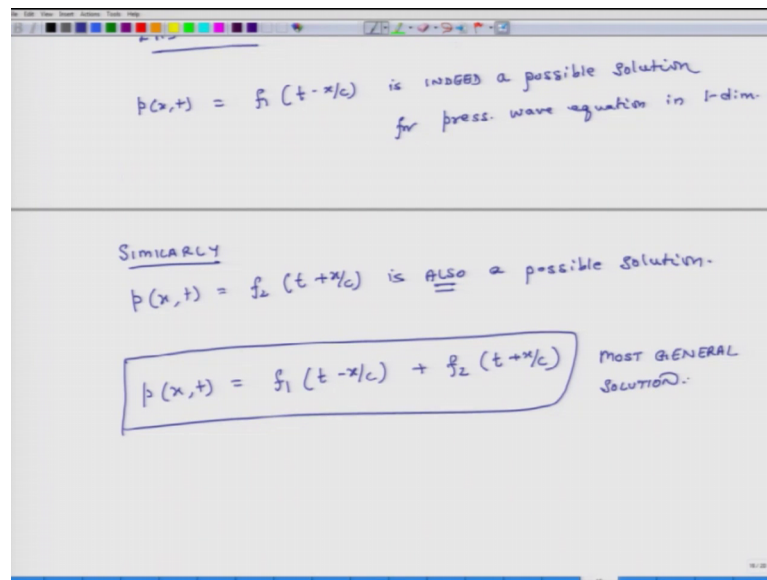 File Edit View Insert Actions Tools Help
p(x,t) = f₁ (t - x/c) is INDEED a possible solution
for press. wave equation in 1-dim.
SIMILARLY
p(x,t) = f₂ (t + x/c) is ALSO a possible solution.
p(x,t) = f₁ (t - x/c) + f₂ (t + x/c) MOST GENERAL
SOLUTION.